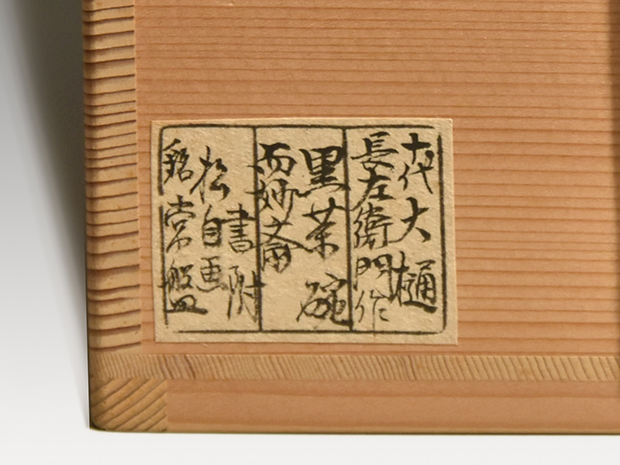 十代大樋
長左衛門作
黒茶碗
而妙斎
書附
松自画
銘常盤